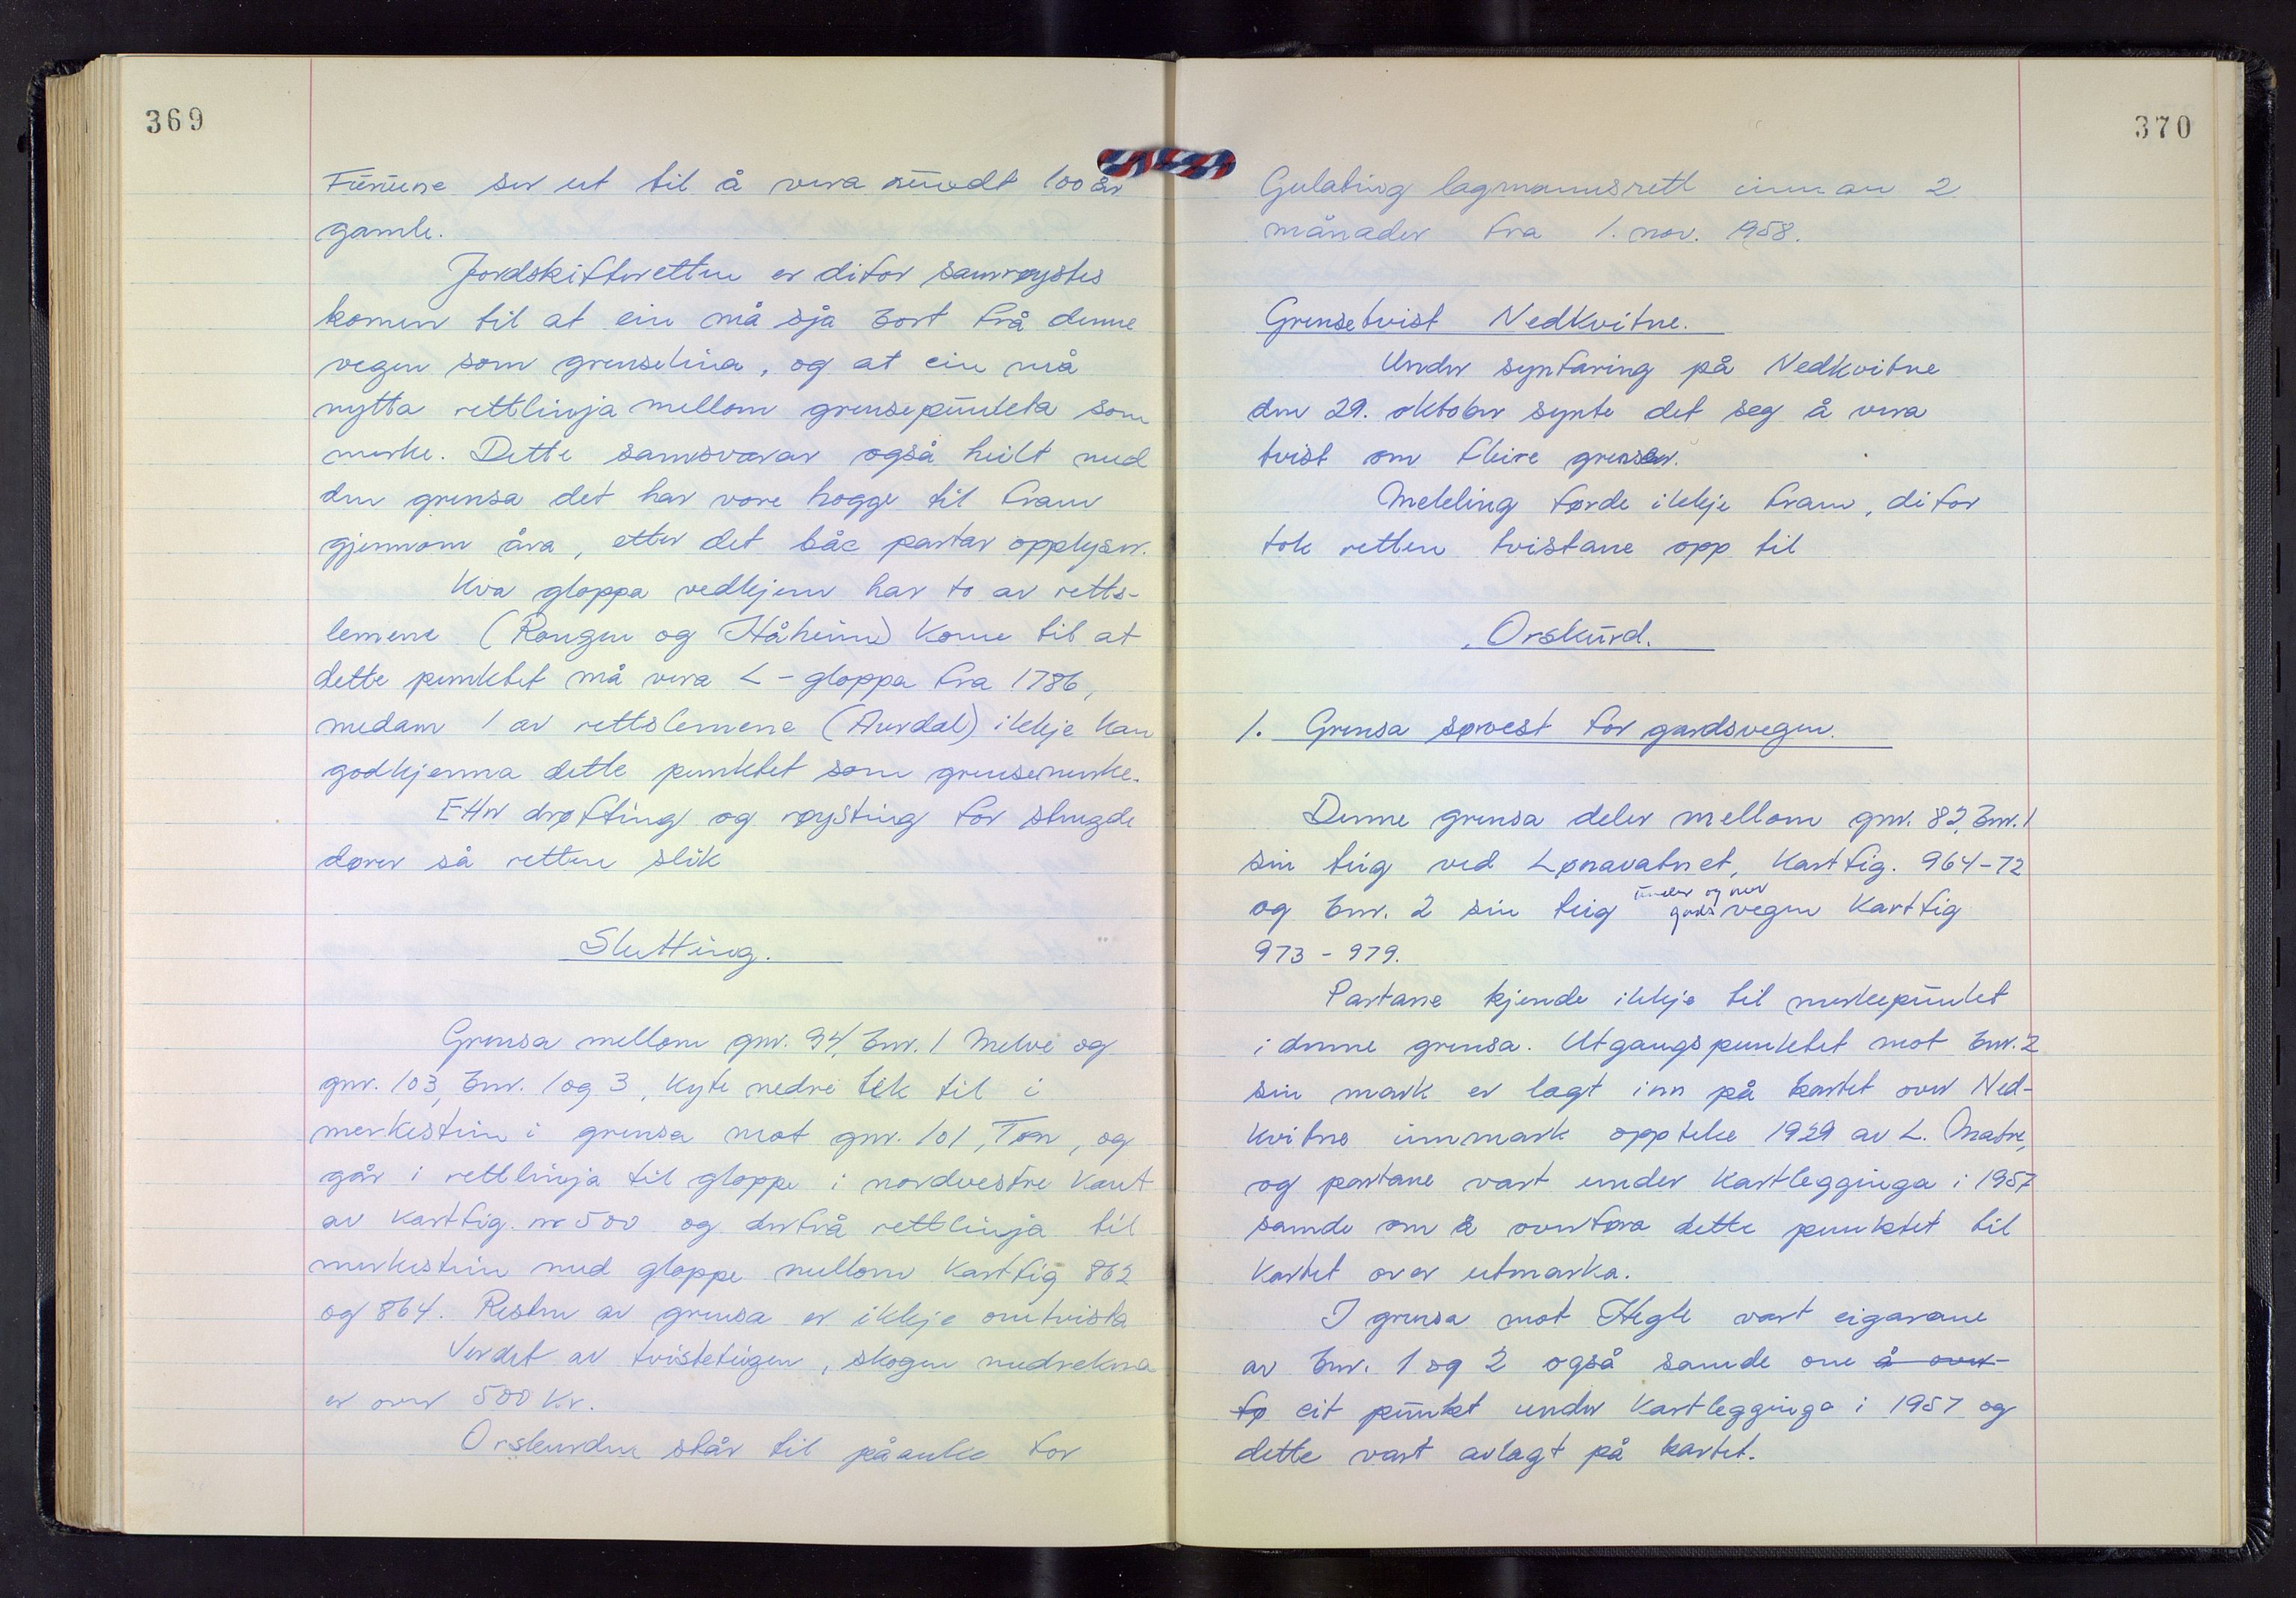 369
Furune ser ut til å vera rundt 100 år
gamle.
Jordskifteretten er difor samrøystes
komen til at ein må sjå bort frå denne
vegen som grenselina, og at ein må
nytta rettlinja mellom grensepunkta som
merke. Dette samsvarar også heilt med
den grensa det har vore hogge til fram
gjennom åra, etter det båe partar opplyser.
Kva gloppa vedkjem har to av retts-
lemene (Rongen og Håheim) kome til at
dette punktet må vera L-gloppa fra 1786,
medam 1 av rettslemene (Aurdal) ikkje kan
godkjenna dette punktet som grensemerke.
Etter drøfting og røysting for stengde
dører så retten slik
Slutting.
Grensa mellom gnr. 94, bnr. 1 Melve og
gnr. 103, bnr. 1 og 3, Kyte nedre tek til i
merkestein i grensa mot gnr. 101, Tøn, og
går i rettlinja til gloppe i nordvestre kant
av kartfig. nr 500 og derfrå rettlinja til
merkestein med gloppe mellom kartfig 862
og 864. Resten av grensa er ikkje omtvista
Verdet av tvisteteigen, skogen medrekna
er over 500 kr.
Orskurden står til påanke for
370
Gulating lagmannsrett innan 2
månader fra 1. nov. 1958.
Grensetvist Nedkvitne.
Under synfaring på Nedkvitne
den 29. oktober synte det seg å vera
tvist om fleire grenser.
Mekling førde ikkje fram, difor
tok retten tvistane opp til
Orskurd.
1. Grensa sørvest for gardsvegen.
Denne grensa deler mellom gnr. 82, bnr. 1
sin teig ved Lønavatnet, kartfig. 964-72
og bnr. 2 sin teig under og ner gardsvegen kartfig
973 - 979.
Partane kjende ikkje til merkepunktet
i denne grensa. Utgangspunktet mot bnr. 2
sin mark er lagt inn på kartet over Ned-
kvitne innmark oppteke 1929 av L. Matre,
og partane vart under kartlegginga i 1957
samde om å overføra dette punktet til
kartet over utmarka.
I grensa mot Hegle vart eigarane
av bnr. 1 og 2 også samde om å over-
fø eit punkt under kartlegginga i 1957 og
dette vart avlagt på kartet.